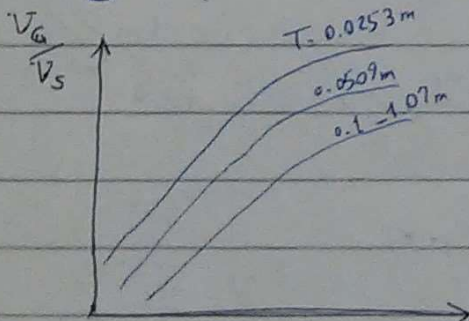 V_G
V_S
T = 0.0253 m
0.0509 m
0.1 - 1.07 m